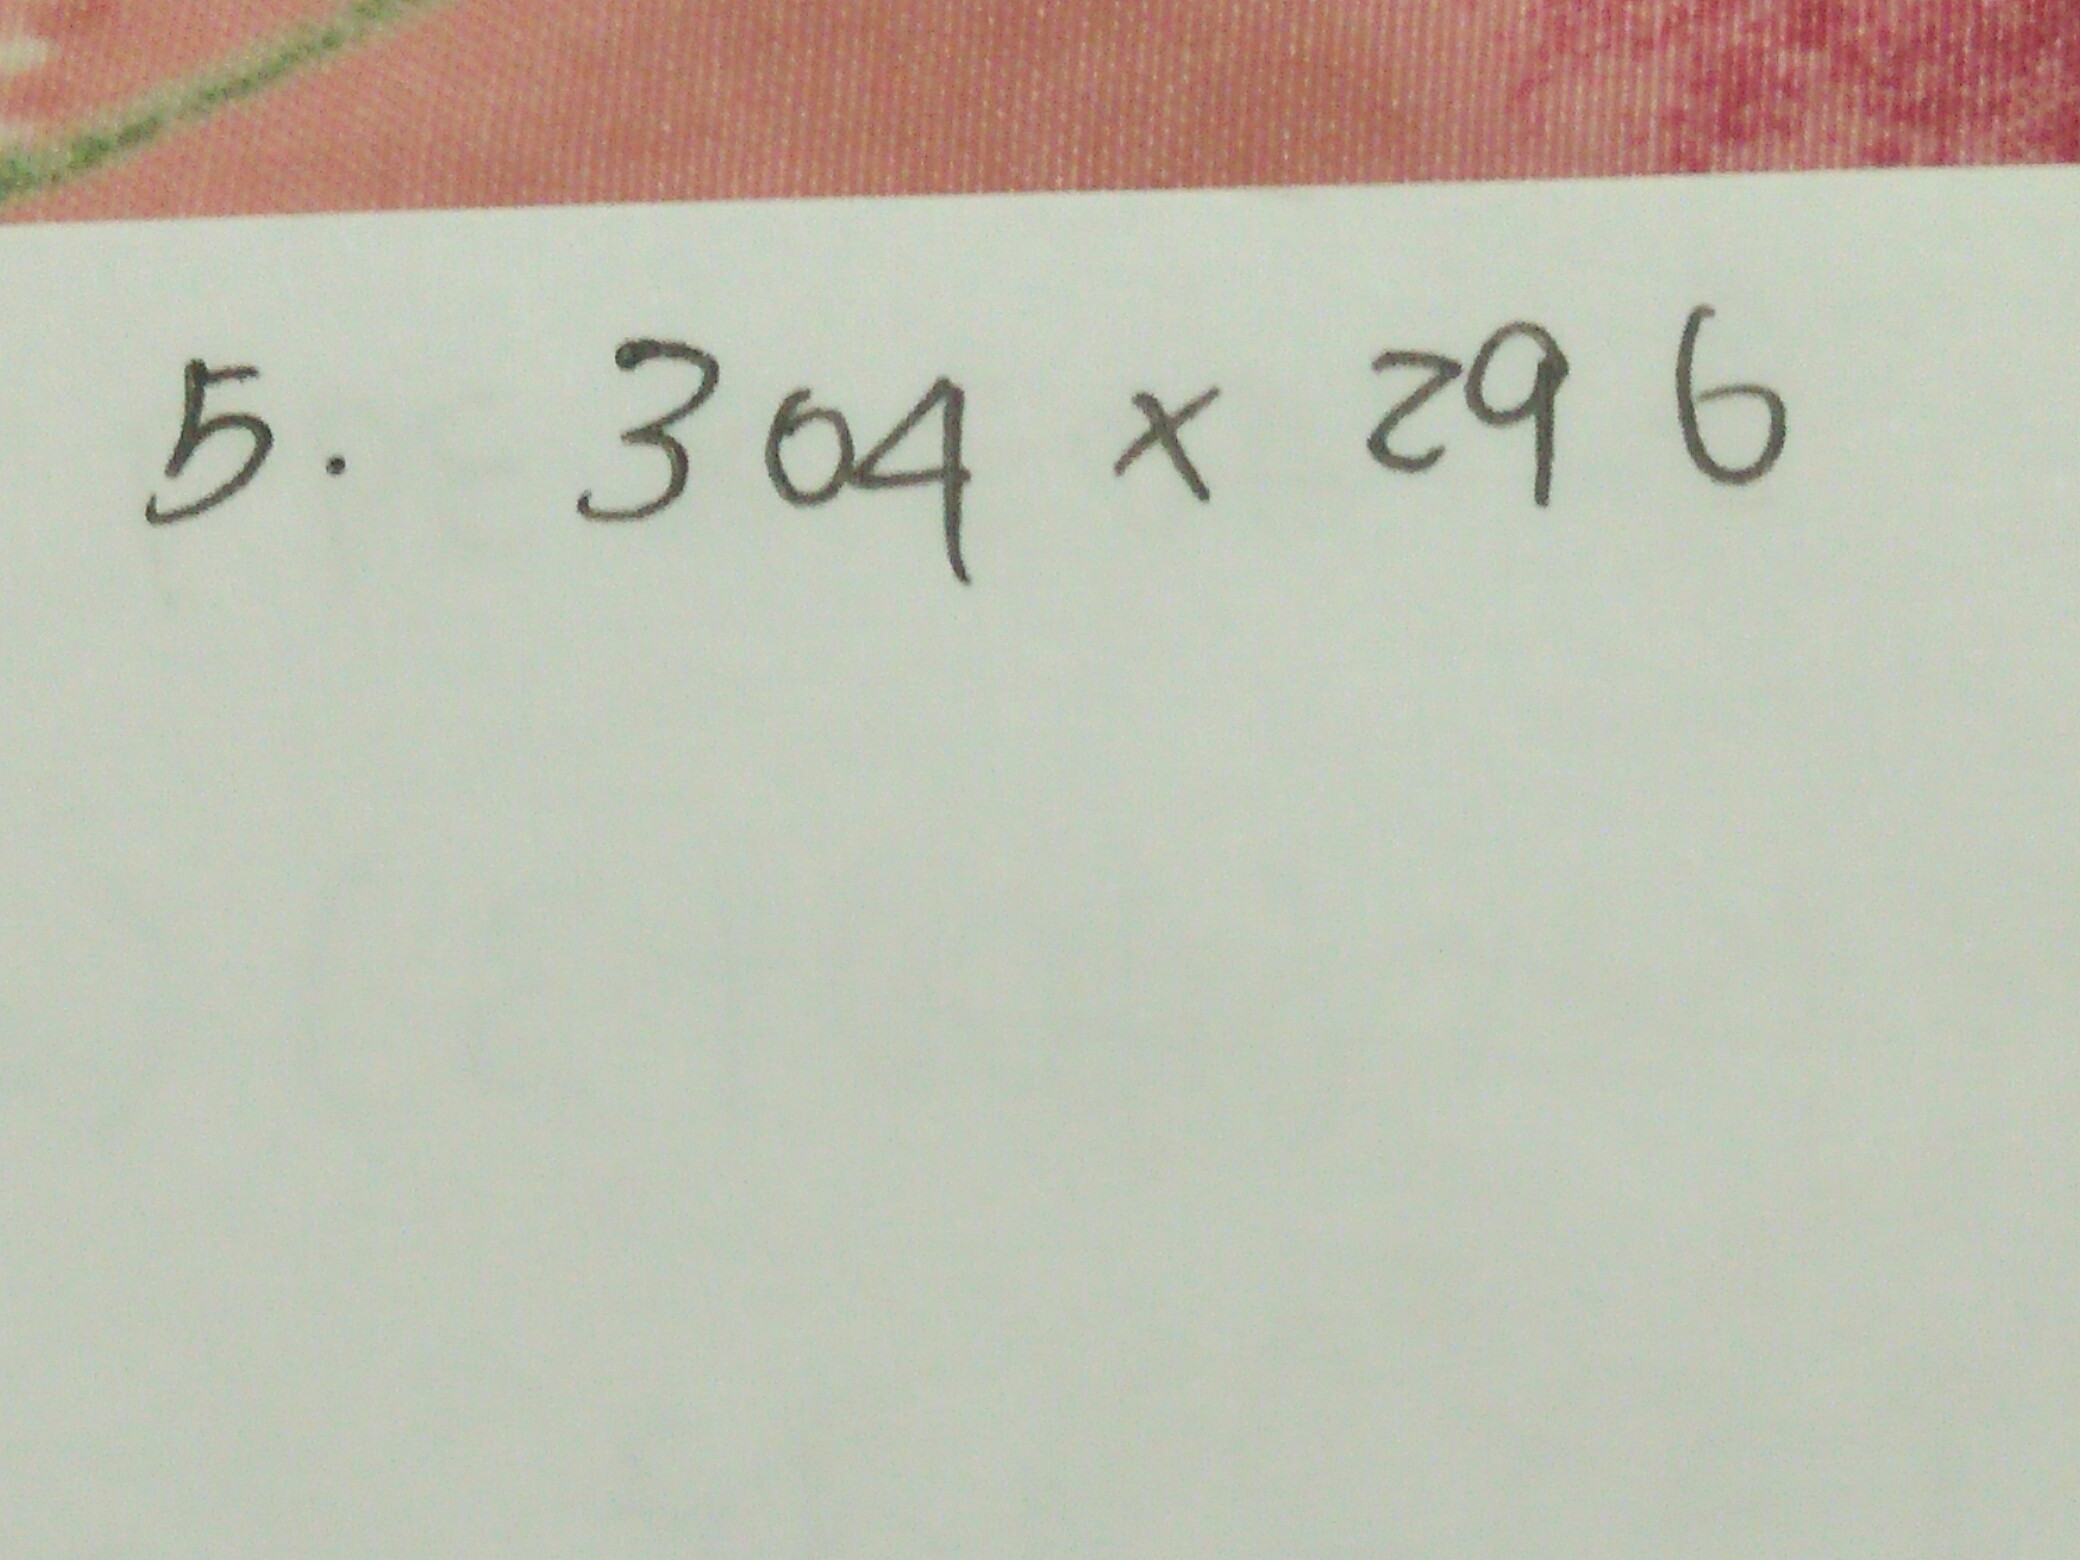 5. 304 x 296